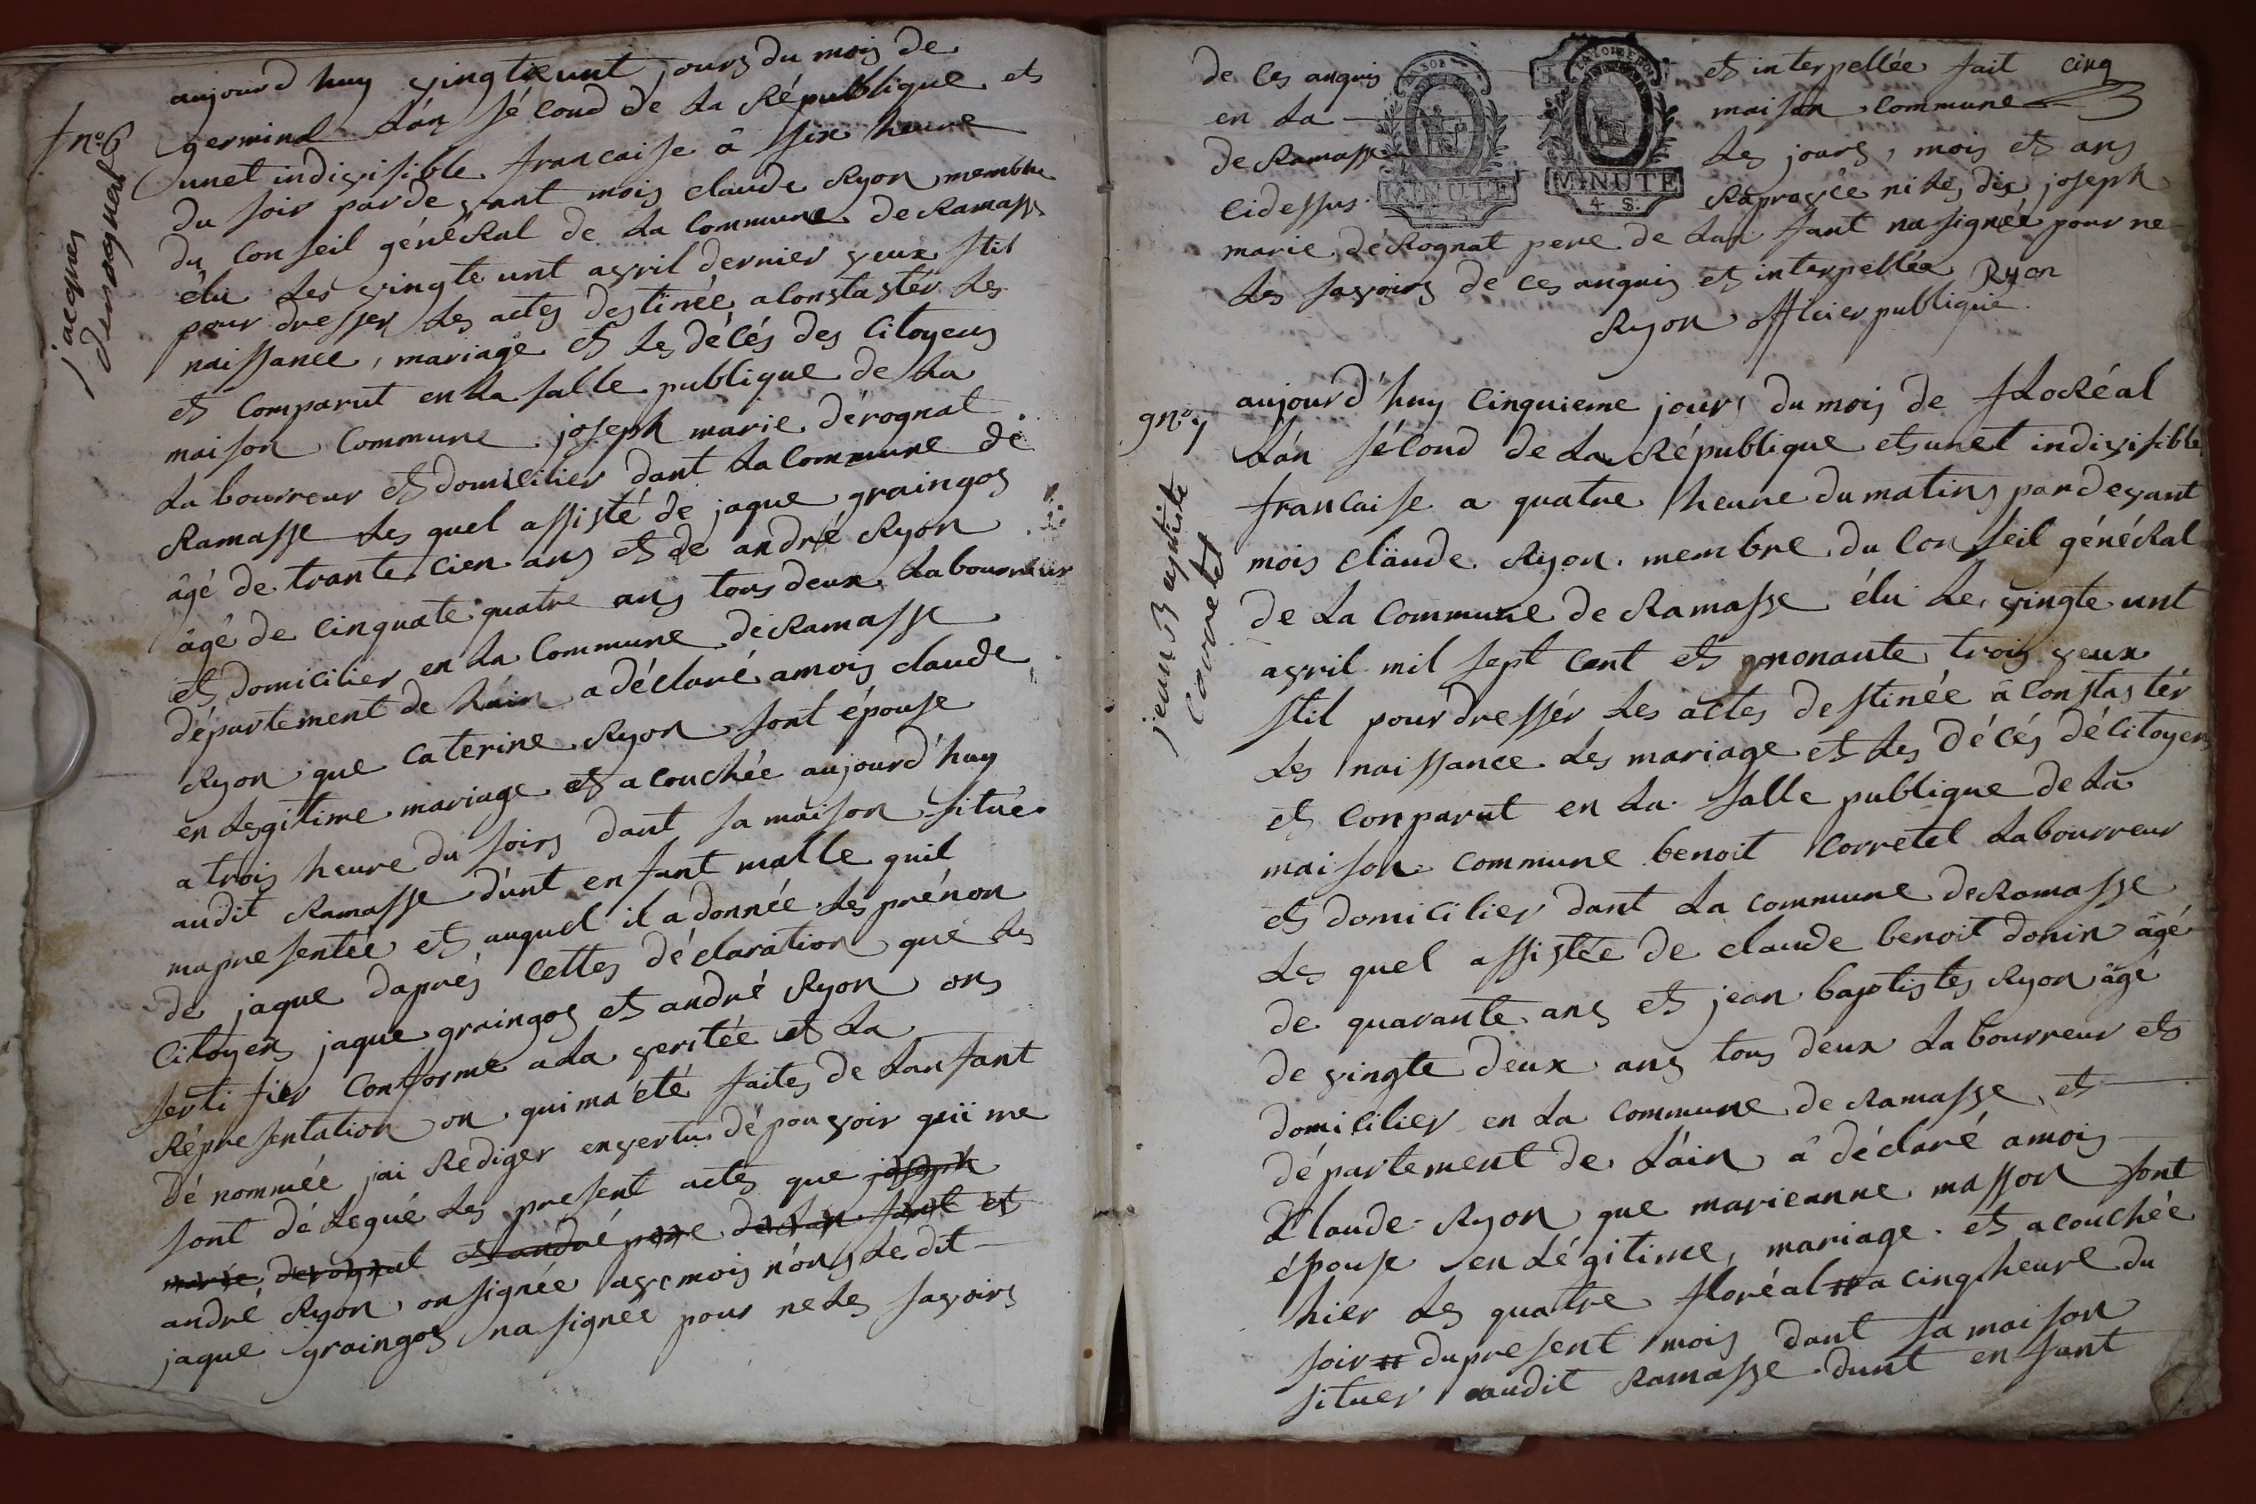 aujourd huy vingteunt jours du mois de
germinal Lán sécond dé La République et
unet indivisible francaise â six heure
du soir pardevant mois claude Ryon membre
du conseil généRal de La commune de Ramasse
élu Les vingte unt avril dernier veux stil
pour dresser Les actes destinée a Constastér Les
naissance, mariage et Les décés des Citoyens
et Comparut en La salle publique de La
maison Commune joseph marie dérognat
Labourreur et domicilier dant La Commune dé
Ramasse Les quel assisté de jaque graingos
âgé de trante cien ans et de andré Ryon
âgé de cinquate quatre ans tous deux Labourreur
et domicilier en La Commune de Ramasse
département de Láin a déclaré amois claude
Ryon que Caterine Ryon sont épouse
en Legitime mariage et a couchée aujourd'huy
a trois heure du soirs dant sa maison situé
audit Ramasse d'unt enfant malle quil
mapresentée et auquel il a donnée Les prénon
de jaque daprés cettes déclaration que Les
Citoyens jaque graingos et andré Ryon ons
sertifier conforme a La veritée et La
Répresentation on qui ma été faites de Lanfant
dénommée jai Rédiger envertu dé pouvoir quïi me
sont délegué Les present actes que joseph
marie derognat et andré pere de Lan fant et
andré Ryon on signée avemois nóns Ledit
jaque graingos na signée pour ne Les savoirs
fno6
jacques
derognat
de ces anquis et interpellée fait cinq
en La maison commune
de Ramasse Les jours, mois et ans
cidessus. Raprovée ni Les dis joseph
marie déRognat pere de Lan fant na signée pour ne
Les savoirs de ces anquis et interpellée Ryon
Ryon officier publiquie
MINUTE
4. S.
MINUTE
4. S.
gno7
jean Baptiste
Corretel
aujourd'huy Cinquieme jours du mois de floRéal
Lán sécond de La République et unet indivisible
francaise a quatre heure du matins pardevant
mois claude Ryon membre du Conseil généRal
de La Commune de Ramasse élu Le vingte unt
avril mil sept Cent et nonante trois veux
stil pour dressér Les actes destinée â Constastér
Les naissance Les mariage et Les décés dé Citoyens
et Conparut en La salle publique de La
maison commune benoit Corretel Labourreur
et domicilier dant La commune de Ramasse
Les quel assistée de claude benoit donin âgé
de quarante ans et jean baptistes Ryon âgé
de vingte deux ans tous deux Labourreur et
domicilier en La Commune de Ramasse et
département de Láin â déclaré amois
Claude Ryon que marieanne masson sont
épouse en Légitime mariage et a couchée
hier Les quatre floréal a cinq heure du
soir du present mois dant sa maison
situer audit Ramasse dunt enfant